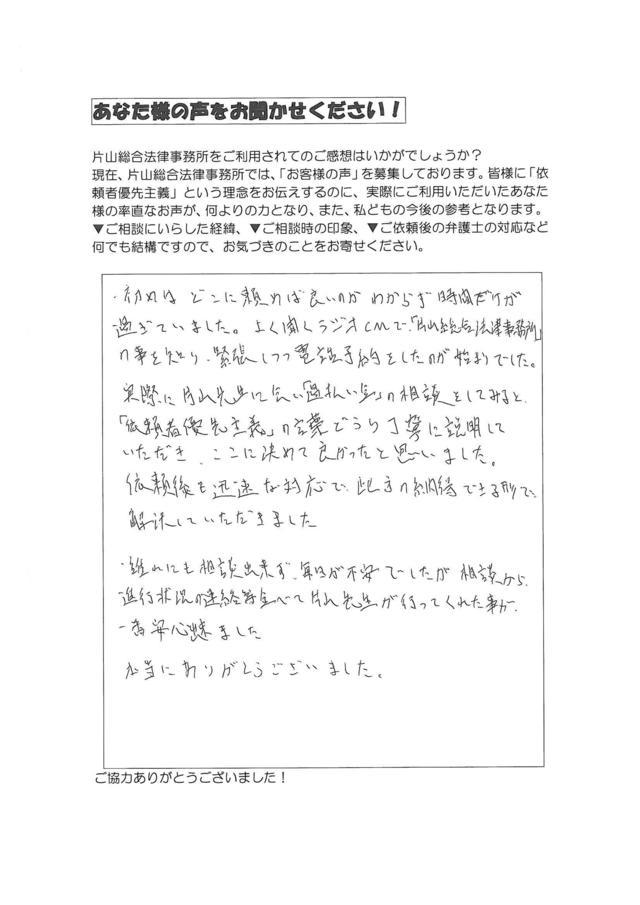 あなた様の声をお聞かせください！
片山総合法律事務所をご利用されてのご感想はいかがでしょうか？
現在、片山総合法律事務所では、「お客様の声」を募集しております。皆様に「依
頼者優先主義」という理念をお伝えするのに、実際にご利用いただいたあなた
様の率直なお声が、何よりの力となり、また、私どもの今後の参考となります。
▼ご相談にいらした経緯、▼ご相談時の印象、▼ご依頼後の弁護士の対応など
何でも結構ですので、お気づきのことをお寄せください。
・初めは どこに頼めば良いのか わからず 時間だけが
過ぎていました。よく聞くラジオCMで、「片山総合法律事務所」
の事を知り、緊張しつつ電話予約をしたのが始まりでした。
実際に片山先生に会い「過払い金」の相談をしてみると、
「依頼者優先主義」の言葉どうり丁寧に説明して
いただき、ここに決めて良かったと思いました。
依頼後も迅速な対応で、此方の納得できる形で、
解決していただきました
・誰れにも相談出来ず、毎日が不安でしたが 相談から、
進行状況の連絡等全べて片山先生が行ってくれた事が、
一番安心出来ました
本当にありがとうございました。
ご協力ありがとうございました！